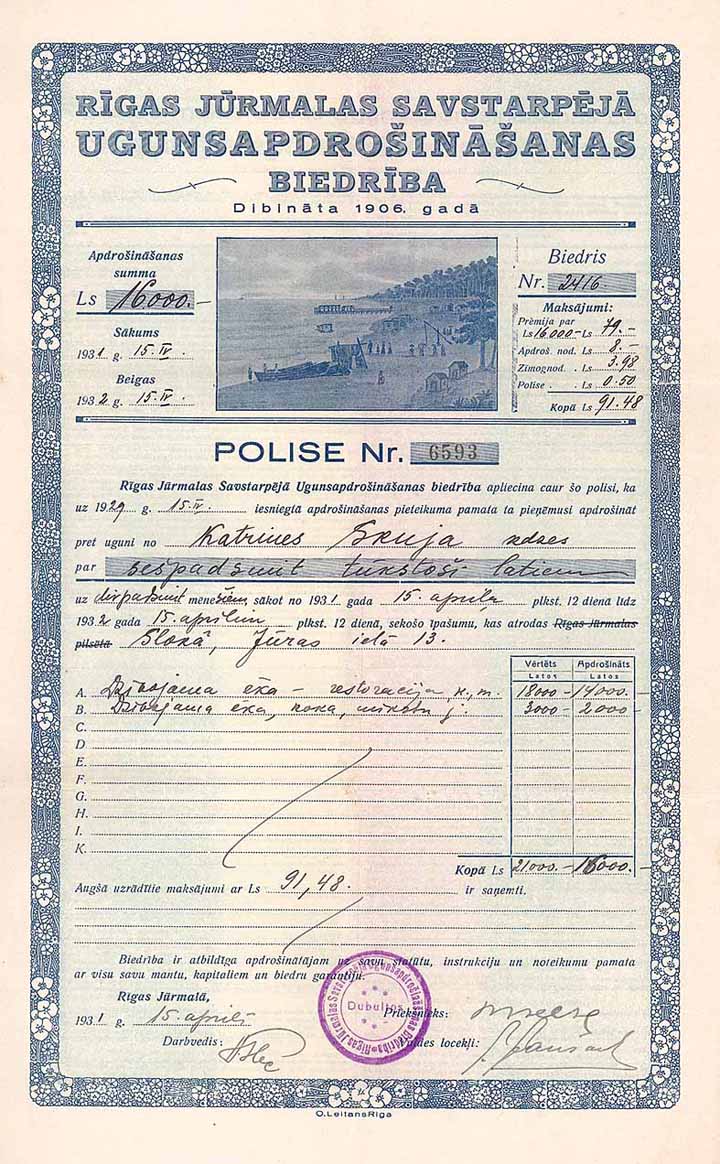 RĪGAS JŪRMALAS SAVSTARPĒJĀ
UGUNSAPDROŠINĀŠANAS
BIEDRĪBA
Dibināta 1906. gadā
Apdrošināšanas
summa
Ls 16000.-
Sākums
1931 g. 15.IV.
Beigas
1932 g. 15.IV.
Biedris
Nr. 2416.
Maksājumi:
Prēmija par
Ls 16000-Ls 79.-
Apdroš. nod. Ls 8.-
Zīmognod. . Ls 3.98
Polise . . Ls 0.50
Kopā Ls 91.48
POLISE Nr. 6593
Rīgas Jūrmalas Savstarpējā Ugunsapdrošināšanas biedrība apliecina caur šo polisi, ka
uz 1929 g. 15.IV. iesniegtā apdrošināšanas pieteikuma pamata ta pieņēmusi apdrošināt
pret uguni no Katrines Skuja
par sešpadsmit tūkstoši latiem
uz divpadsmit menešiem, sākot no 1931 gada 15. aprīļa plkst. 12 dienā līdz
1932 gada 15. aprīlim plkst. 12 dienā, sekošo īpašumu, kas atrodas Rīgas Jūrmalas
pilsētā Slokā, Jūras ielā 13.
Vērtēts Apdrošināts
Latos Latos
A. Dzīvojama ēka - restorācija k. m. 18000 - 14000.-
B. Dzīvojama ēka, koka, 3000 - 2000 -
C.
D
E.
F.
G.
H.
I.
K.
Kopā Ls 21000.- 16000.-
Augšā uzrādītie maksājumi ar Ls 91,48. ir saņemti.
Biedrība ir atbildīga apdrošinātājam uz savu statūtu, instrukciju un noteikumu pamata
ar visu savu mantu, kapitaliem un biedru garantiju.
Rīgas Jūrmalā,
1931 g. 15. aprīlī
Priekšnieks:
Darbvedis:
Valdes locekļi:
Rīgas Jūrmalas Savstarpējā Ugunsapdrošināšanas Biedrība
Dubultos
O. Leitans Rīga